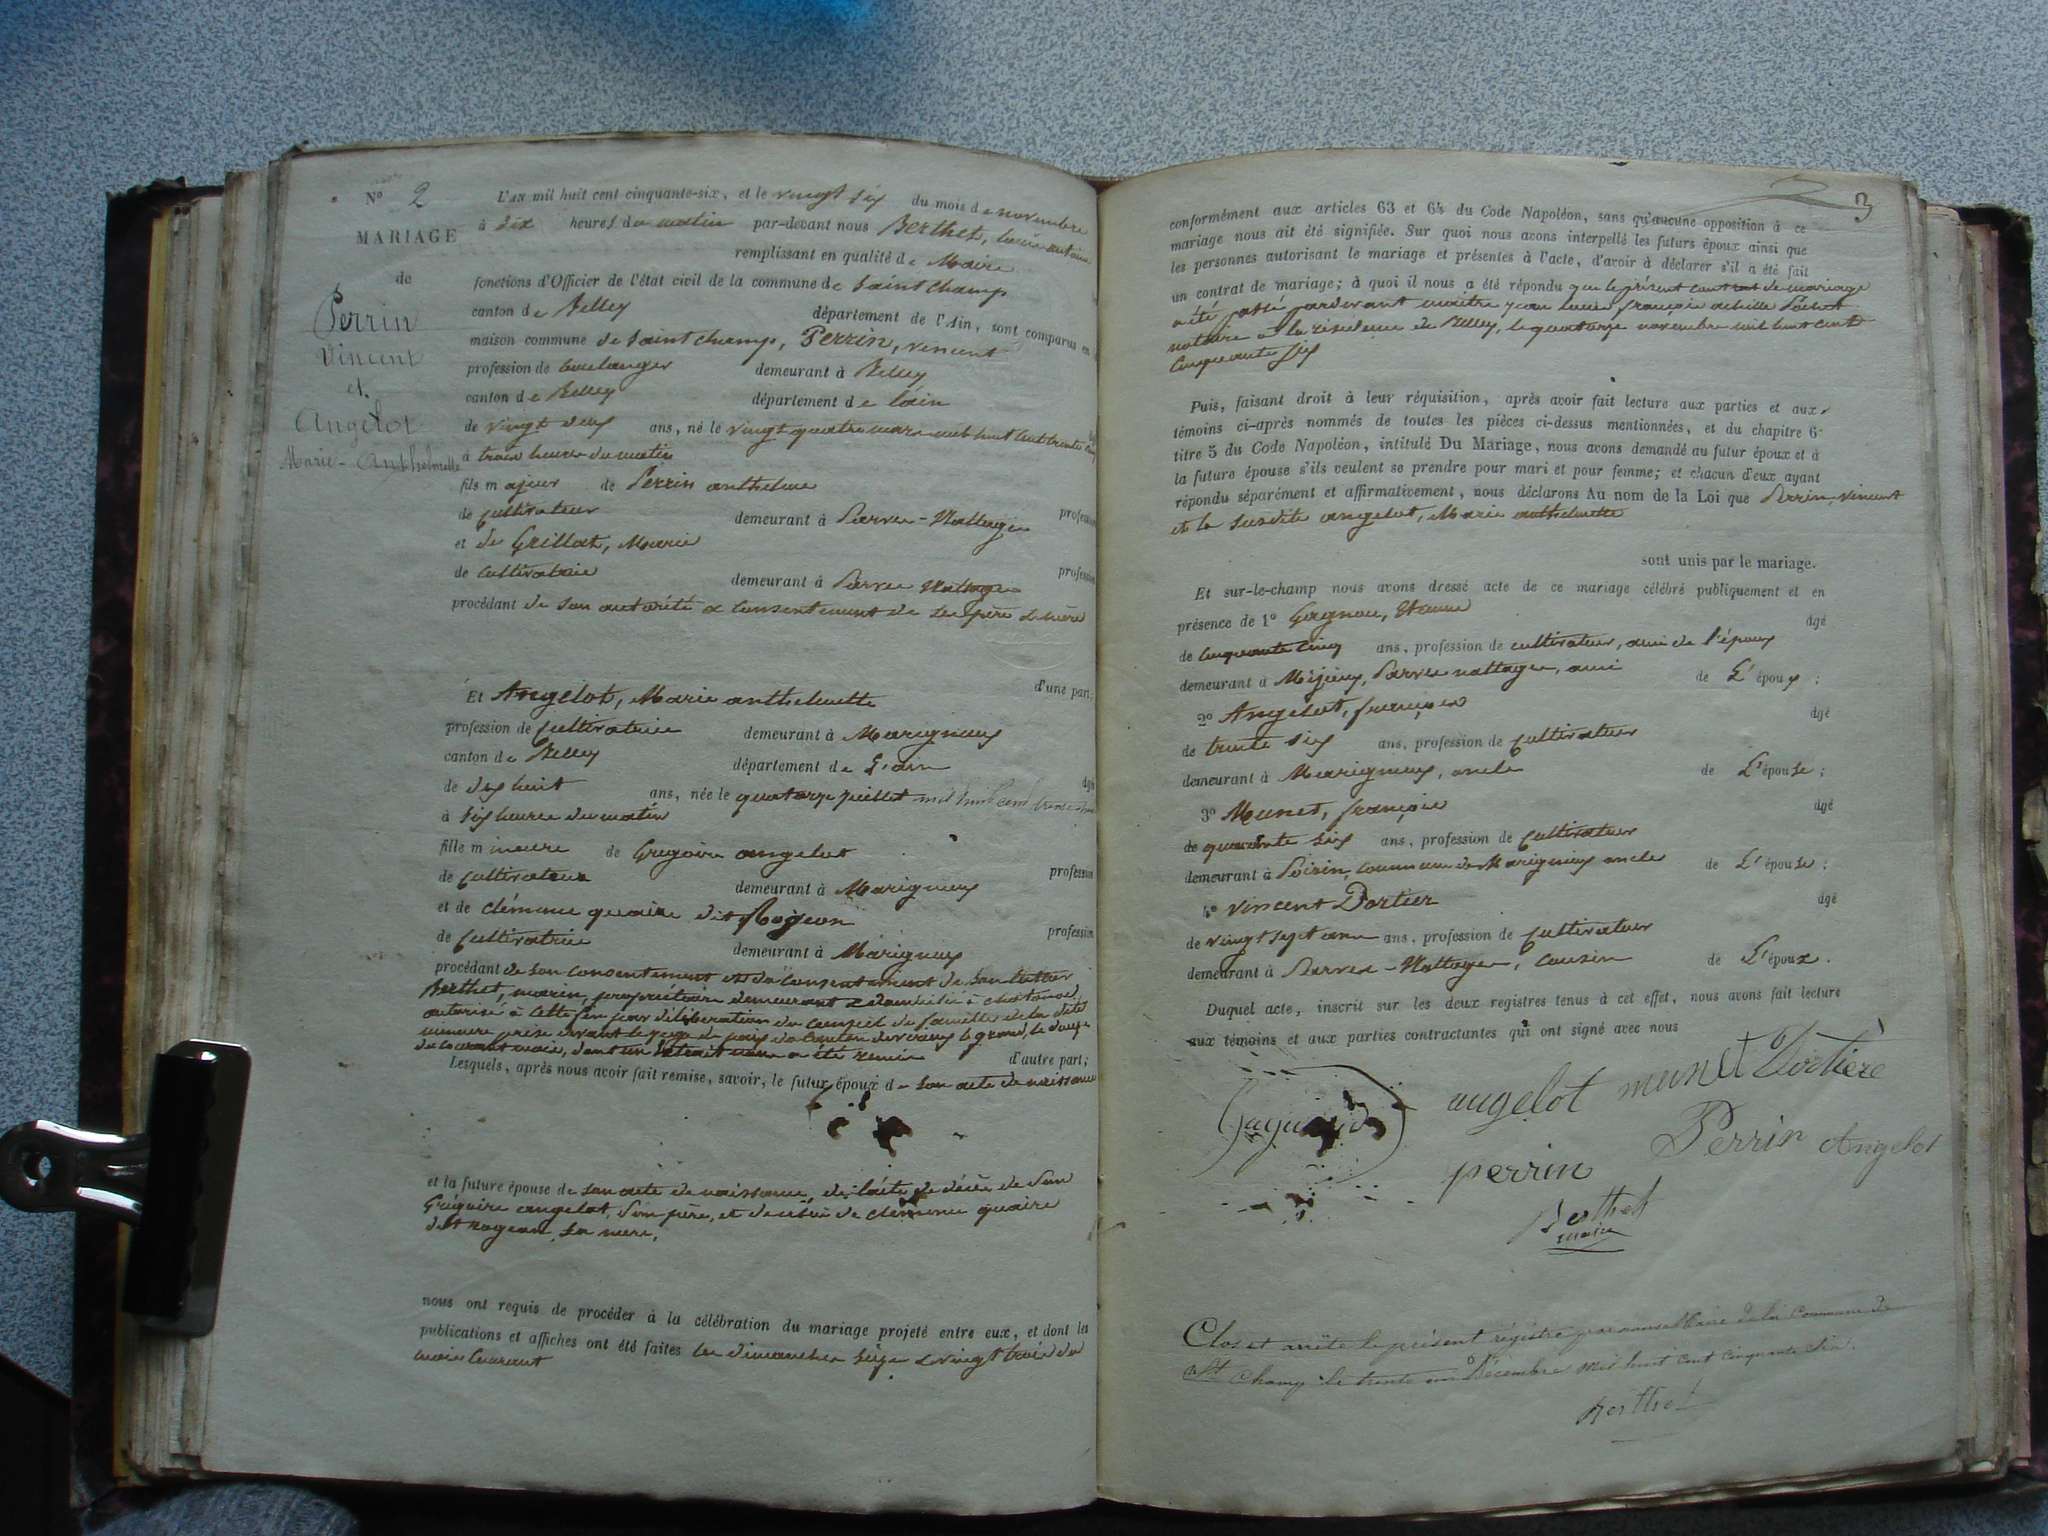 N° 2
MARIAGE
de
Perrin
Vincent
et
Angelot
Marie-Anthelmette
L'AN mil huit cent cinquante-six, et le vingt six du mois de novembre
à dix heures du matin par-devant nous Berthet,
remplissant en qualité de Maire
fonctions d'Officier de l'état civil de la commune de Saint champ
canton de Belley département de l'Ain, sont comparus en
maison commune de Saint champ, Perrin, vincent
profession de boulanger demeurant à Belley
canton de Belley département de l'ain
de vingt deux ans, né le vingt quatre mars mil huit cent trente
à trois heures du matin
fils majeur de Perrin anthelme profession
de cultivateur demeurant à Parves-Nattages
et de Grillat, Marie profession
de cultivatrice demeurant à Parves Nattages
procédant de son autorité & consentement de ses père & mère
d'une part;
Et Angelot, Marie anthelmette
profession de cultivatrice demeurant à Marignieu
canton de Belley département de L'ain
de dix huit ans, née le quatorze juillet mil huit cent trente
à six heures du matin
fille mineure de Grégoire angelot profession
de cultivateur demeurant à Marignieu
et de clémence quaire dit Rojeon profession
de cultivatrice demeurant à Marignieu
procédant de son consentement et du consentement de son tuteur
Berthet, propriétaire demeurant & domicilié à
autorisé à cette fin par délibération du conseil de famille de la dite
mineure prise devant le juge de paix du canton de virieux le grand, le douze
du courant mois, dont un extrait nous a été remis d'autre part;
Lesquels, après nous avoir fait remise, savoir, le futur époux de son acte de naissance
et la future épouse de son acte de naissance, de l'acte de décès de
Grégoire angelot, son père, et de celui de clémence quaire
dit rogeon, sa mère,
nous ont requis de procéder à la célébration du mariage projeté entre eux, et dont les
publications et affiches ont été faites les dimanches seize & vingt trois du
mois courant
3
conformément aux articles 63 et 64 du Code Napoléon, sans qu'aucune opposition à ce
mariage nous ait été signifiée. Sur quoi nous avons interpellé les futurs époux ainsi que
les personnes autorisant le mariage et présentes à l'acte, d'avoir à déclarer s'il a été fait
un contrat de mariage; à quoi il nous a été répondu que le présent contrat de mariage
a été passé pardevant maître jean louis françois achille
notaire à la résidence de Belley, le quatorze novembre mil huit cent
cinquante six
Puis, faisant droit à leur réquisition, après avoir fait lecture aux parties et aux
témoins ci-après nommés de toutes les pièces ci-dessus mentionnées, et du chapitre 6
titre 5 du Code Napoléon, intitulé Du Mariage, nous avons demandé au futur époux et à
la future épouse s'ils veulent se prendre pour mari et pour femme; et chacun d'eux ayant
répondu séparément et affirmativement, nous déclarons Au nom de la Loi que Perrin, vincent
et la susdite angelot, Marie anthelmette
sont unis par le mariage.
Et sur-le-champ nous avons dressé acte de ce mariage célébré publiquement et en
présence de 1° Gagnou, Etienne âgé
de cinquante cinq ans, profession de cultivateur, ami de l'époux
demeurant à Parves nattages, ami de L'époux;
2° Angelot, françois âgé
de trente six ans, profession de cultivateur
demeurant à Marignieux, oncle de L'épouse;
3° Munet, françois âgé
de quarante six ans, profession de cultivateur
demeurant à Poisin, commune de Marignieux oncle de L'épouse;
4° vincent Dortier âgé
de vingt sept ans ans, profession de cultivateur
demeurant à Parves-Nattages, cousin de L'époux.
Duquel acte, inscrit sur les deux registres tenus à cet effet, nous avons fait lecture
aux témoins et aux parties contractantes qui ont signé avec nous
angelot munet Dortière
Perrin Angelot
perrin
Berthet
maire
Clos et arrêté le présent régistre par nous Maire de la Commune de
St Champ le trente un Décembre mil huit cent cinquante six.
Berthet